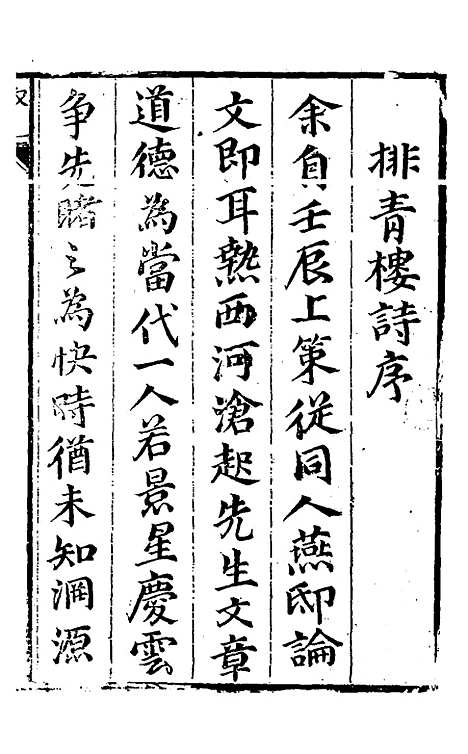 排青樓詩序
余負壬辰上策從同人燕邸論
文即耳熱西河滄起先生文章
道德為當代一人若景星慶雲
争先睹之為快時猶未知淵源